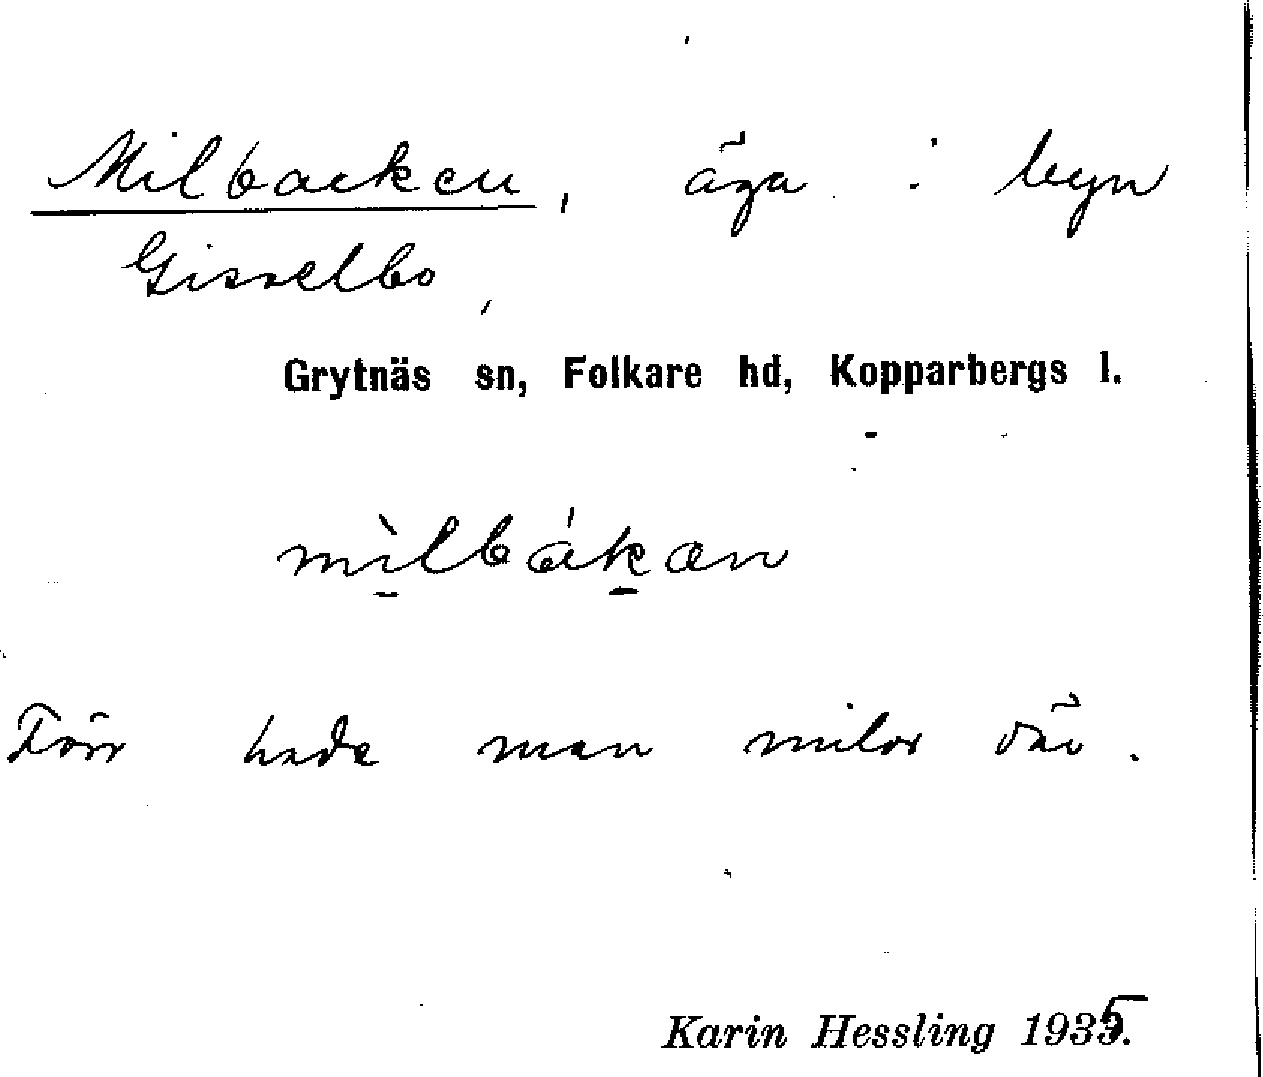 Milbacken, äga i byn
Gisselbo,
Grytnäs sn, Folkare hd, Kopparbergs l.
mìlbákan
Förr hade man milor där.
Karin Hessling 1935.